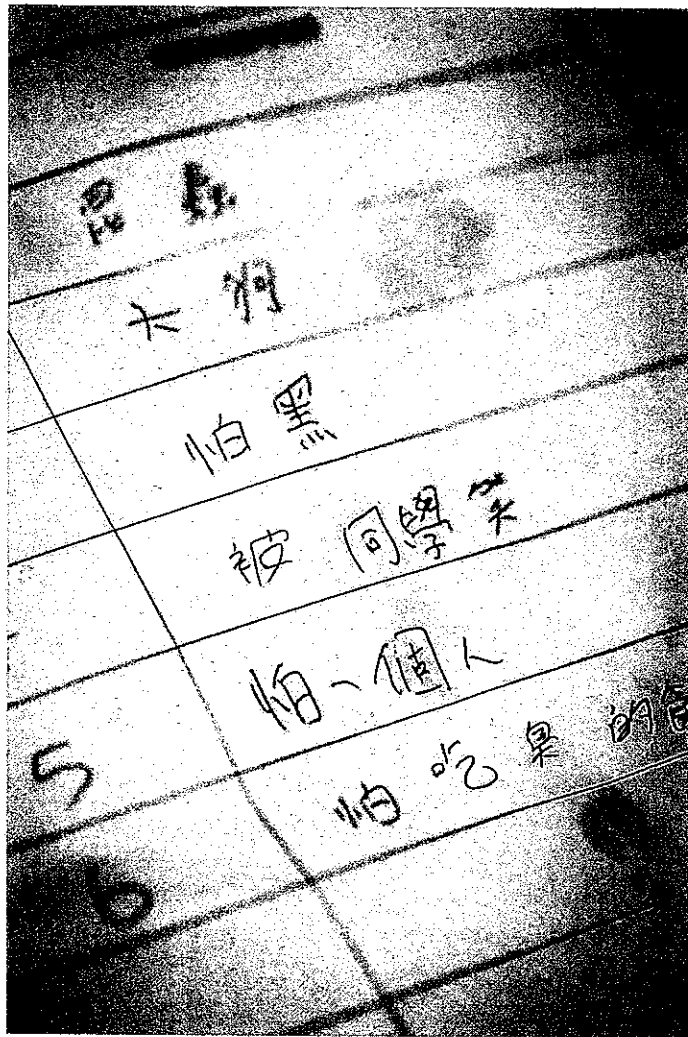 昆蟲
大狗
怕黑
被同學笑
怕一個人
5
怕吃臭的
6